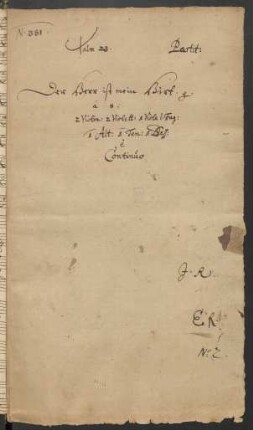 N. 381
Psalm 23. Partit:
Der Herr ist mein Hirt.
a 9:
2 Violin: 2 Violett: 1 Viola 1 Fag:
1 Alt: 1 Ten: 1 Bass:
è
Continuo
J. R.
E. R.